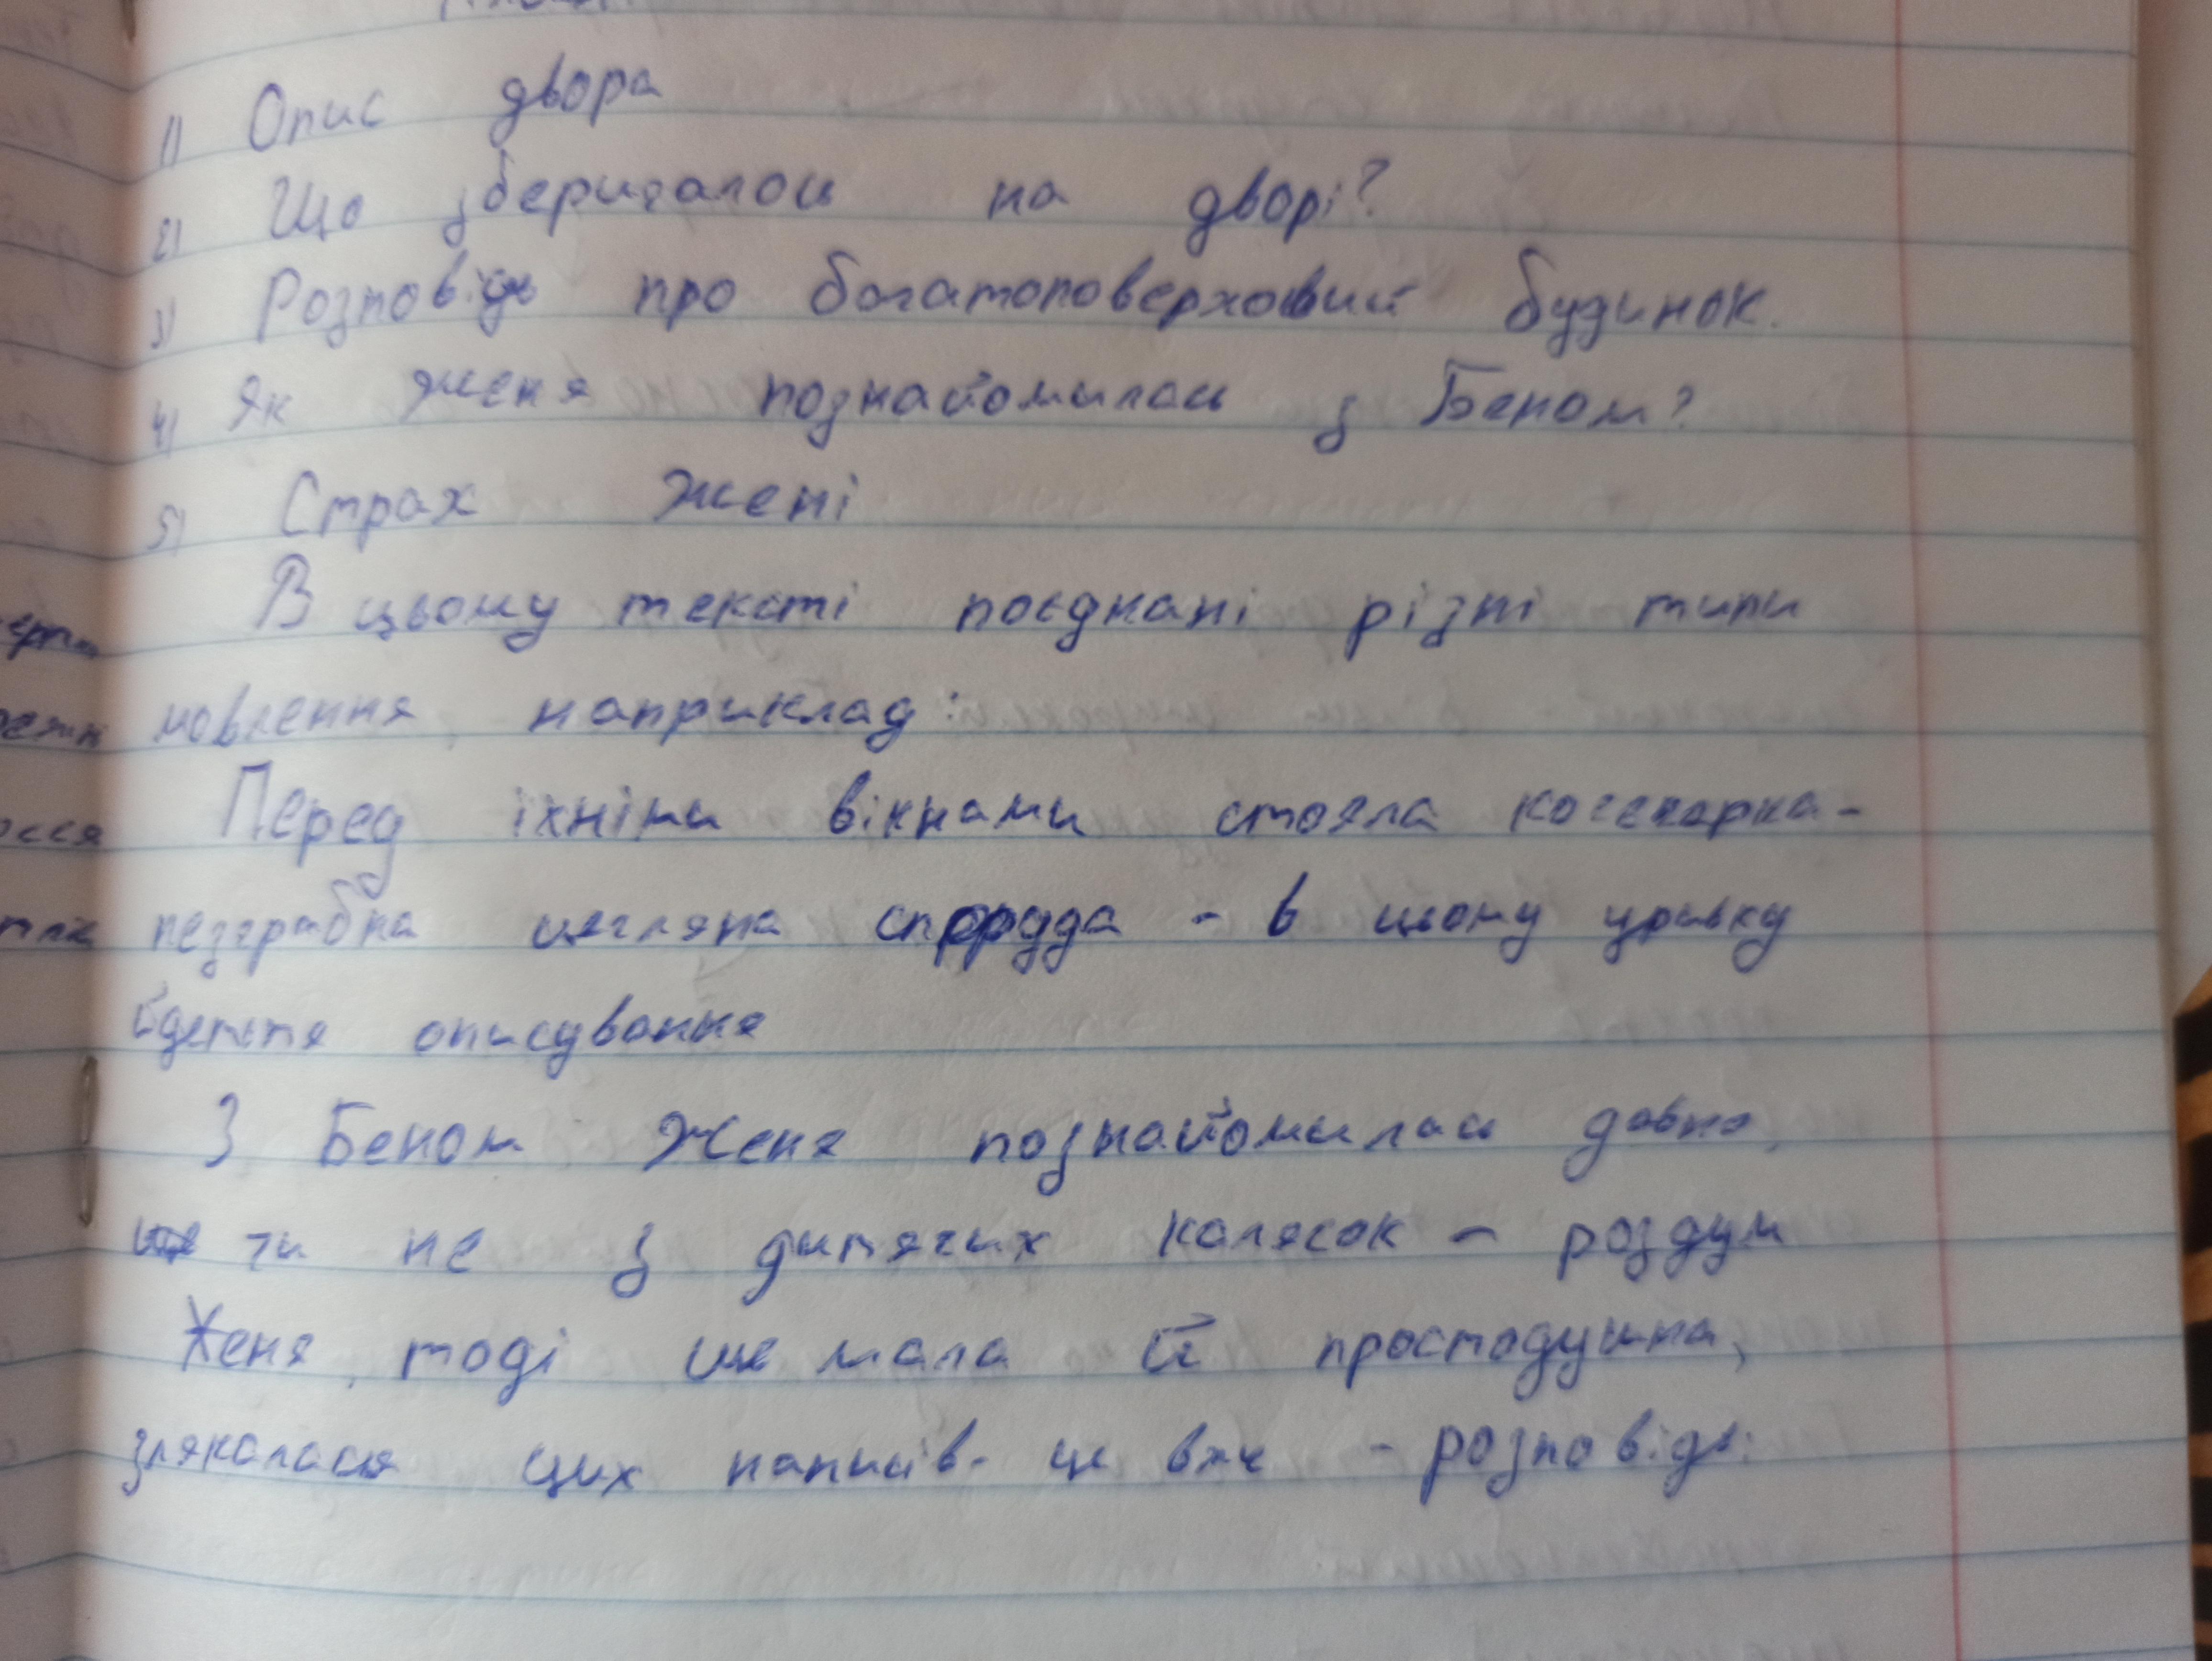 1) Опис двора
2) Що зберигалось на дворі?
3) Розповідь про богатоповерховий будинок.
4) Як женя познайомилась з Беном?
5) Страх жені
В цьому тексті поєднані різні типи
мовлення, наприклад:
Перед їхніми вікнами стояла кочегарка-
незграбна цегляна споруда - в цьому уривку
йдеться описування
З Беном Женя познайомилась давно,
чи не з дитячих колясок - роздум
Женя, тоді ще мала й простодушна,
злякалася цих написів- це вже - розповідь.